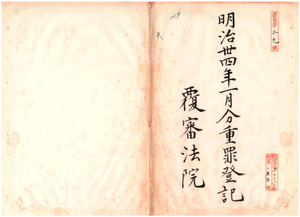 明治丗四年一月分重罪登記
覆審法院